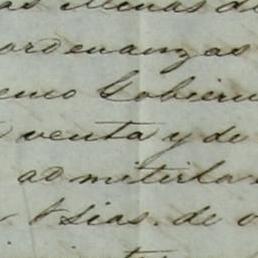 as Minas d
ordenanzas
emo Gobiern
venta y de
admitirla
Vsias. de